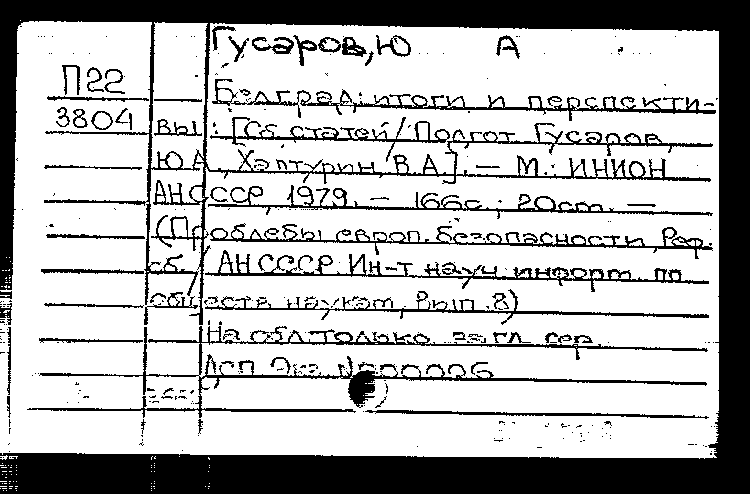 Гусаров, Ю А
П22
3804
Белград: итоги и перспекти-
вы : [Сб. статей / Подгот. Гусаров,
Ю.А., Халтурин, В.А.]. — М.: ИНИОН
АН СССР, 1979. — 166с.; 20cm. —
(Проблемы европ. безопасности, Реф.
сб. / АН СССР. Ин-т науч. информ. по
обществ наукам, Вып. 8)
На обл. только загл. сер.
Дсп Экз. N000006